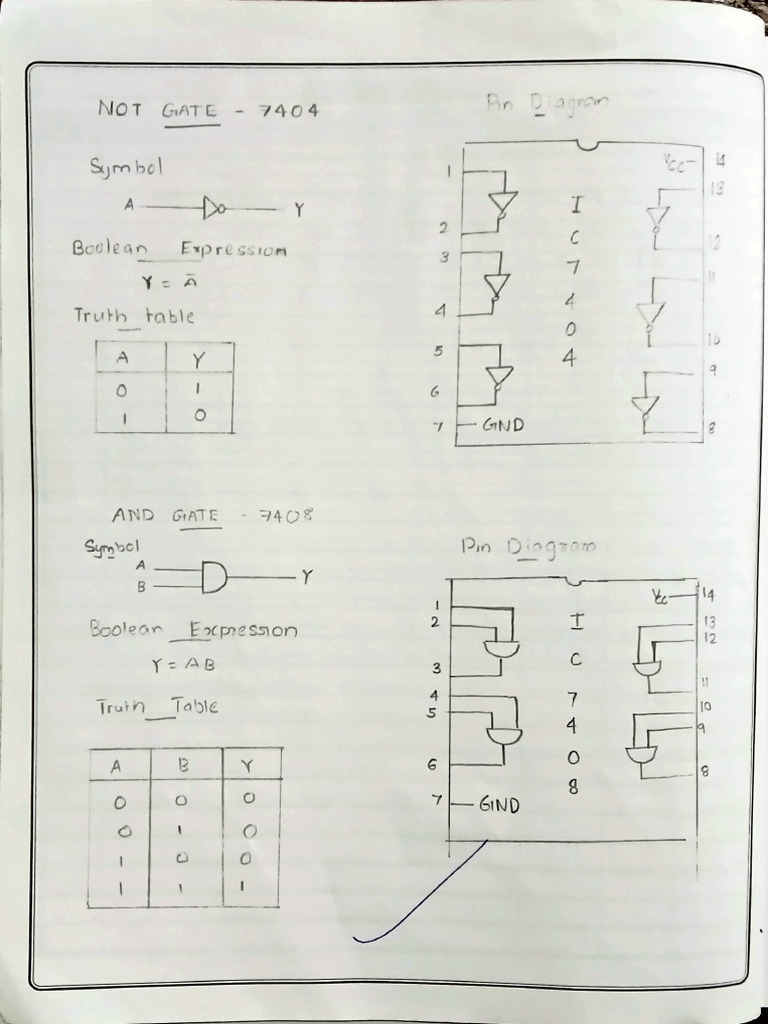 NOT GATE - 7404
Symbol
A Y
Boolean Expression
Y = Ā
Truth table
A Y
0 1
1 0
Pin Diagram
1
2
3
4
5
6
7 GND
I
C
7
4
0
4
VCC 14
13
12
11
10
9
8
AND GATE - 7408
Symbol
A
B
Y
Boolean Expression
Y = AB
Truth Table
A B Y
0 0 0
0 1 0
1 0 0
1 1 1
Pin Diagram
1
2
3
4
5
6
7 GND
I
C
7
4
0
8
Vcc 14
13
12
11
10
9
8